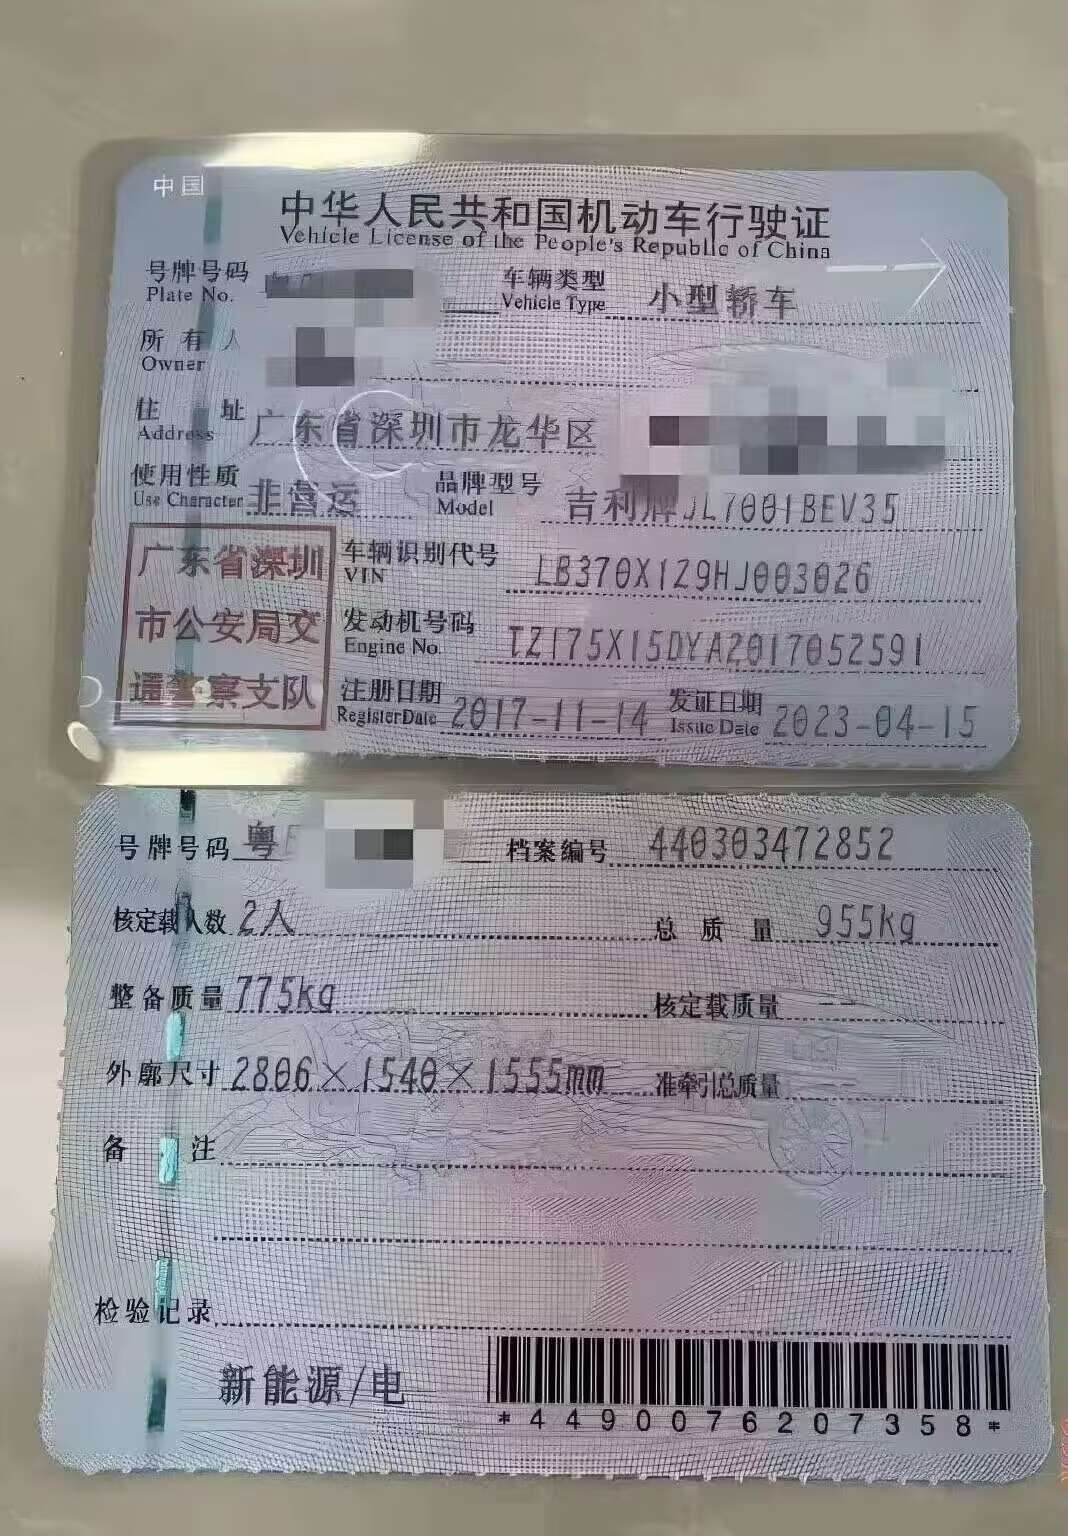 中国
中华人民共和国机动车行驶证
Vehicle License of the People's Republic of China
号牌号码
Plate No.
车辆类型 小型轿车
Vehicle Type
所有人
Owner
住址 广东省深圳市龙华区
Address
使用性质 非营运
Use Character
品牌型号 吉利牌JL7001BEV35
Model
广东省深圳
市公安局交
通警察支队
车辆识别代号 LB370X1Z9HJ003026
VIN
发动机号码 TZ175X15DYA2017052591
Engine No.
注册日期 2017-11-14
Register Date
发证日期 2023-04-15
Issue Date
号牌号码 粤
档案编号 440303472852
核定载人数 2人
总质量 955kg
整备质量 775kg
核定载质量 --
外廓尺寸 2806×1540×1555mm
准牵引总质量 --
备注
检验记录
新能源/电
*4490076207358*